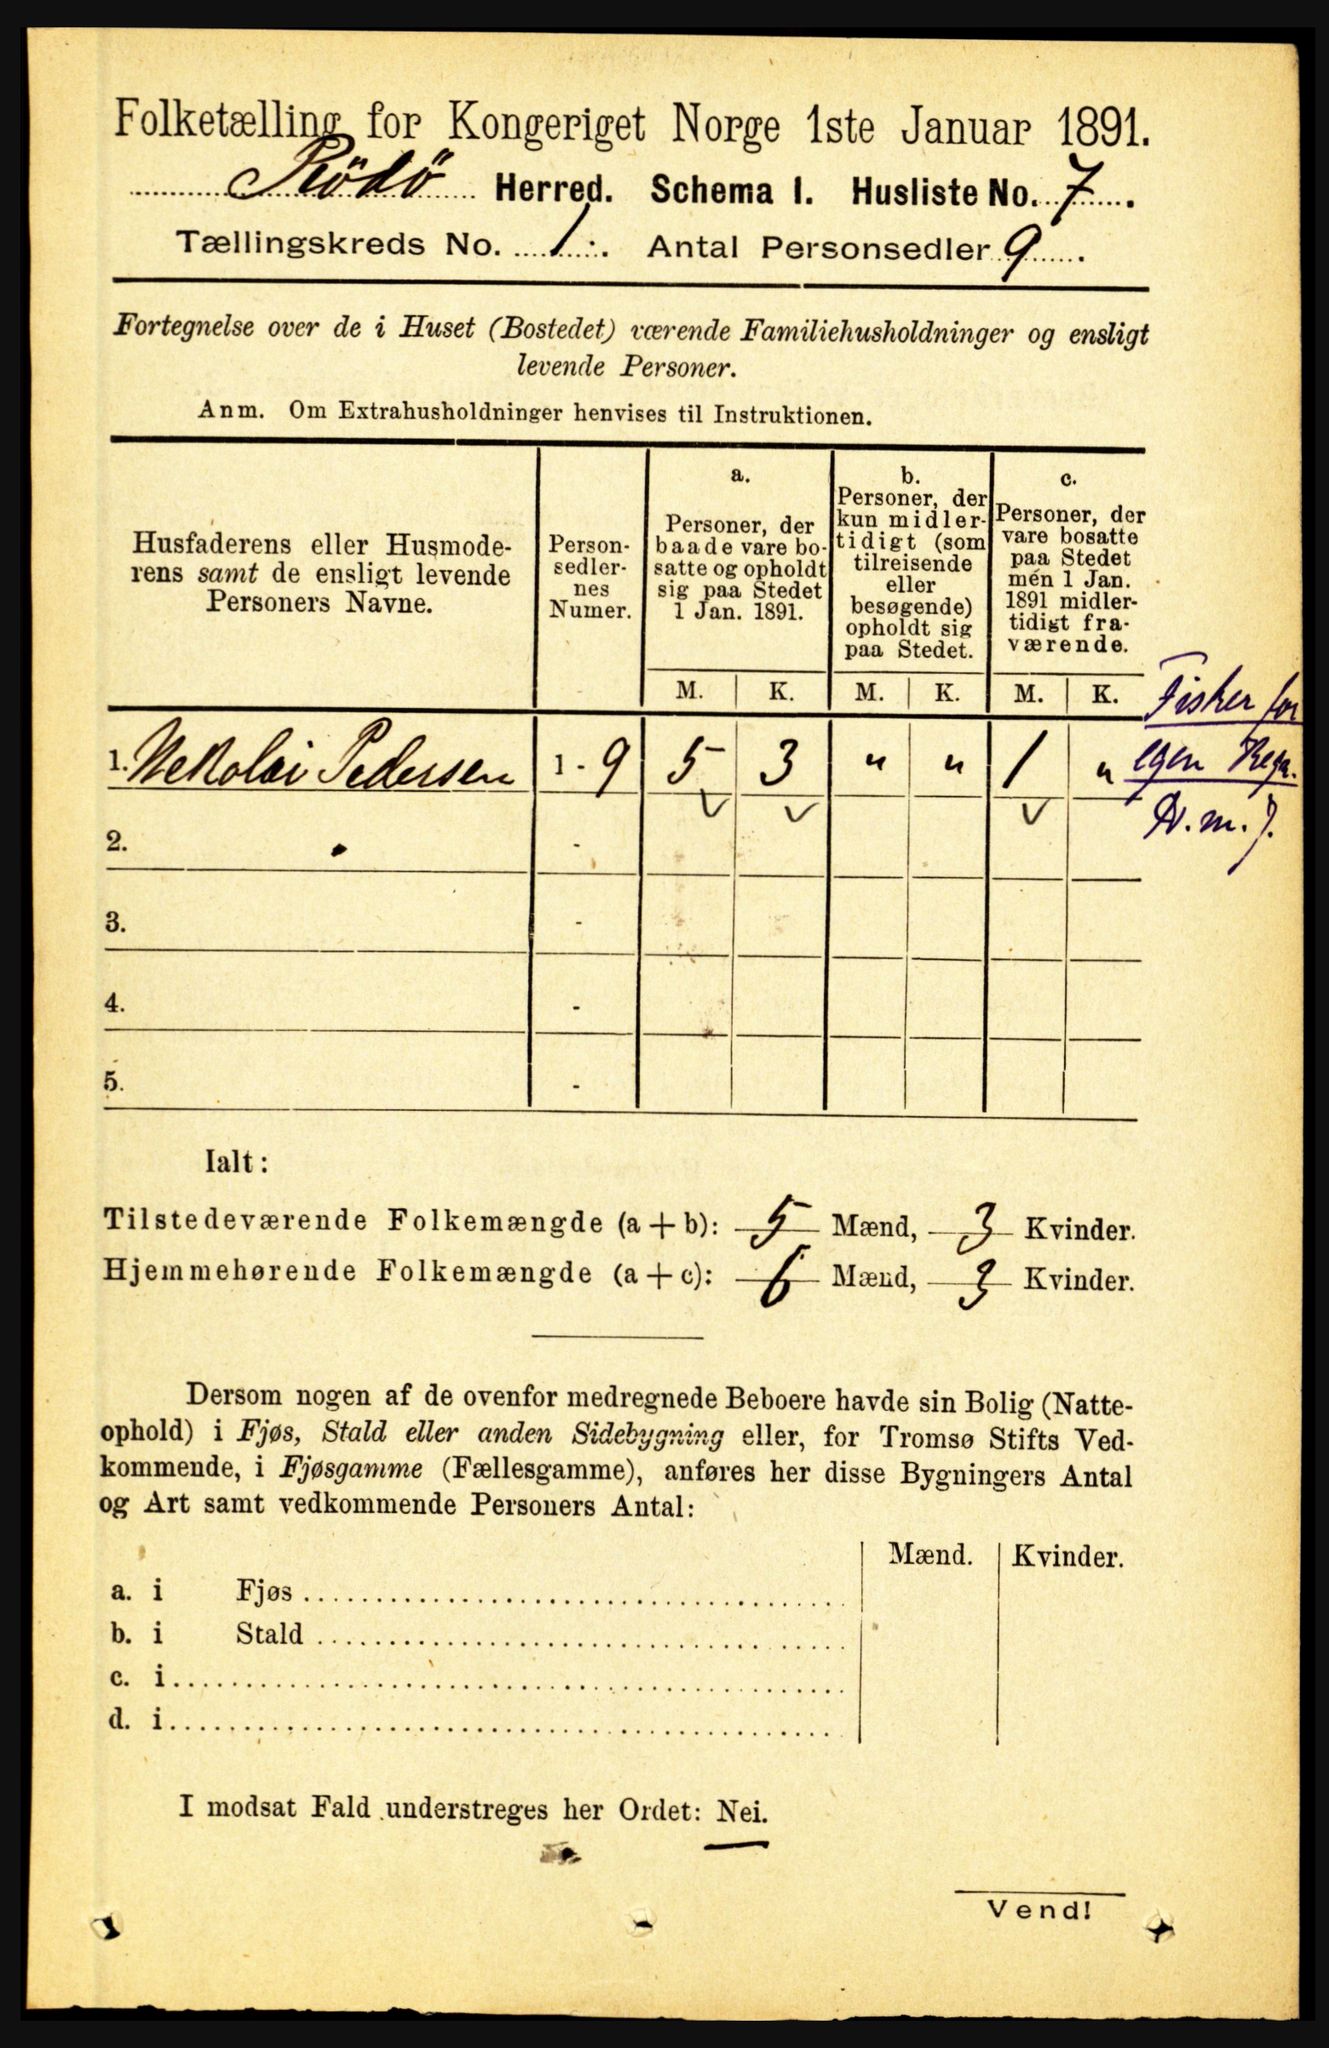 Folketælling for Kongeriget Norge 1ste Januar 1891.
Rödö Herred. Schema I. Husliste No. 7.
Tællingskreds No. 1. Antal Personsedler 9.
Fortegnelse over de i Huset (Bostedet) værende Familiehusholdninger og ensligt
levende Personer.
Anm. Om Extrahusholdninger henvises til Instruktionen.
Husfaderens eller Husmode-
rens samt de ensligt levende
Personers Navne.
Person-
sedler-
nes
Numer.
a.
Personer, der
baade vare bo-
satte og opholdt
sig paa Stedet
1 Jan. 1891.
b.
Personer, der
kun midler-
tidigt (som
tilreisende
eller
besøgende)
opholdt sig
paa Stedet.
c.
Personer, der
vare bosatte
paa Stedet
men 1 Jan.
1891 midler-
tidigt fra-
værende.
M. K. M. K. M. K.
1. Nekolai Pedersen 1 - 9 5 3 " " 1 "
Fisker for
egen Regn.
N. m. J.
2. -
3. -
4. -
5. -
Ialt:
Tilstedeværende Folkemængde (a + b): 5 Mænd, 3 Kvinder.
Hjemmehørende Folkemængde (a + c): 6 Mænd, 3 Kvinder.
Dersom nogen af de ovenfor medregnede Beboere havde sin Bolig (Natte-
ophold) i Fjøs, Stald eller anden Sidebygning eller, for Tromsø Stifts Ved-
kommende, i Fjøsgamme (Fællesgamme), anføres her disse Bygningers Antal
og Art samt vedkommende Personers Antal:
Mænd. Kvinder.
a. i Fjøs
b. i Stald
c. i
d. i
I modsat Fald understreges her Ordet: Nei.
Vend!